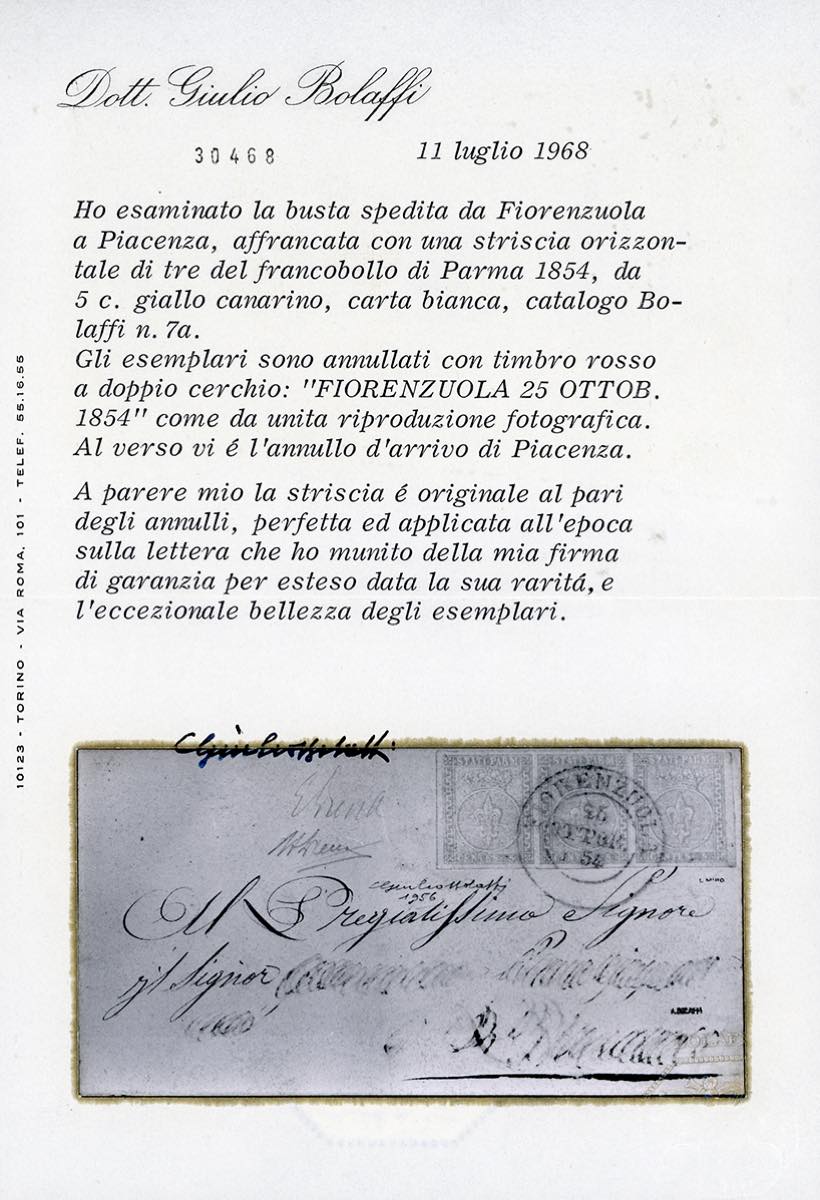 Dott. Giulio Bolaffi
30468
11 luglio 1968
Ho esaminato la busta spedita da Fiorenzuola
a Piacenza, affrancata con una striscia orizzon-
tale di tre del francobollo di Parma 1854, da
5 c. giallo canarino, carta bianca, catalogo Bo-
laffi n. 7a.
Gli esemplari sono annullati con timbro rosso
a doppio cerchio: "FIORENZUOLA 25 OTTOB.
1854" come da unita riproduzione fotografica.
Al verso vi é l'annullo d'arrivo di Piacenza.
A parere mio la striscia é originale al pari
degli annulli, perfetta ed applicata all'epoca
sulla lettera che ho munito della mia firma
di garanzia per esteso data la sua raritá, e
l'eccezionale bellezza degli esemplari.
10123 - TORINO - VIA ROMA, 101 - TELEF. 55.16.55
Giulio Bolaffi
STATI PARM STATI PARM STATI PARM
FIORENZUOLA
25
OTTOB.
54
Giulio Bolaffi
1956
Al Pregiatissimo Signore
il Signor
A.BOLAFFI